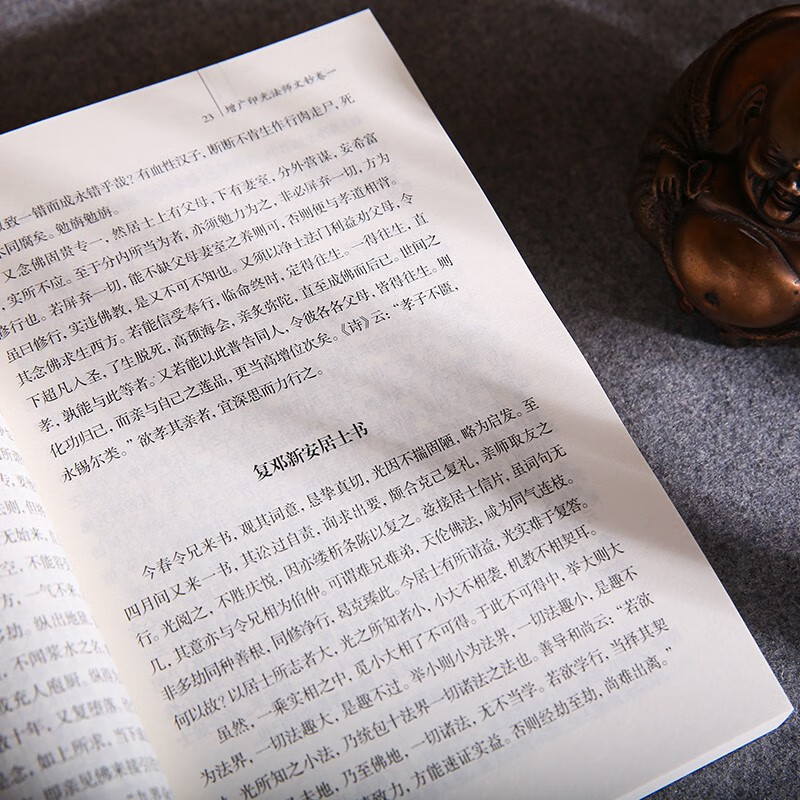 23 增广印光法师文钞卷一
致一错而成永错乎哉?有血性汉子,断断不肯生作行肉走尸,死
不同腐矣。勉旃勉旃。
又念佛固贵专一,然居士上有父母,下有妻室,分外营谋,妄希富
,实所不应。至于分内所当为者,亦须勉力为之,非必屏弃一切,方为
修行也。若屏弃一切,能不缺父母妻室之养则可,否则便与孝道相背。
虽曰修行,实违佛教,是又不可不知也。又须以净土法门利益劝父母,令
其念佛求生西方。若能信受奉行,临命终时,定得往生。一得往生,直
下超凡入圣,了生脱死,高预海会,亲炙弥陀,直至成佛而后已。世间之
孝,孰能与此等者。又若能以此普告同人,令彼各各父母,皆得往生。则
化功归己,而亲与自己之莲品,更当高增位次矣。《诗》云:“孝子不匮,
永锡尔类。”欲孝其亲者,宜深思而力行之。
复邓新安居士书
今春令兄来书,观其词意,恳挚真切,光因不揣固陋,略为启发。至
四月间又来一书,其讼过自责,询求出要,颇合克己复礼,亲师取友之
行。光阅之,不胜庆悦,因亦缕析条陈以复之。兹接居士信片,虽词句无
几,其意亦与令兄相为伯仲。可谓难兄难弟,天伦佛法,成为同气连枝。
非多劫同种善根,同修净行,曷克臻此。今居士有所请益,光实难于复答。
何以故?以居士所志者大,光之所知者小,小大不相袭,机教不相契耳。
虽然,一乘实相之中,觅小大相了不可得。于此不可得中,举大则大
为法界,一切法趣大,是趣不过。举小则小为法界,一切法趣小,是趣不
光所知之小法,乃统包十法界一切诸法之法也。善导和尚云:“若欲
夫地,乃至佛地,一切诸法,无不当学。若欲学行,当择其契
致力,方能速证实益。否则经劫至劫,尚难出离。”
无始来,
空,不能
方,一气不来,
劫。纵出地狱
不闻浆水之名
或充人庖厨,
数十年,又复堕落,
念,如上所求,当下
即亲见佛来接引